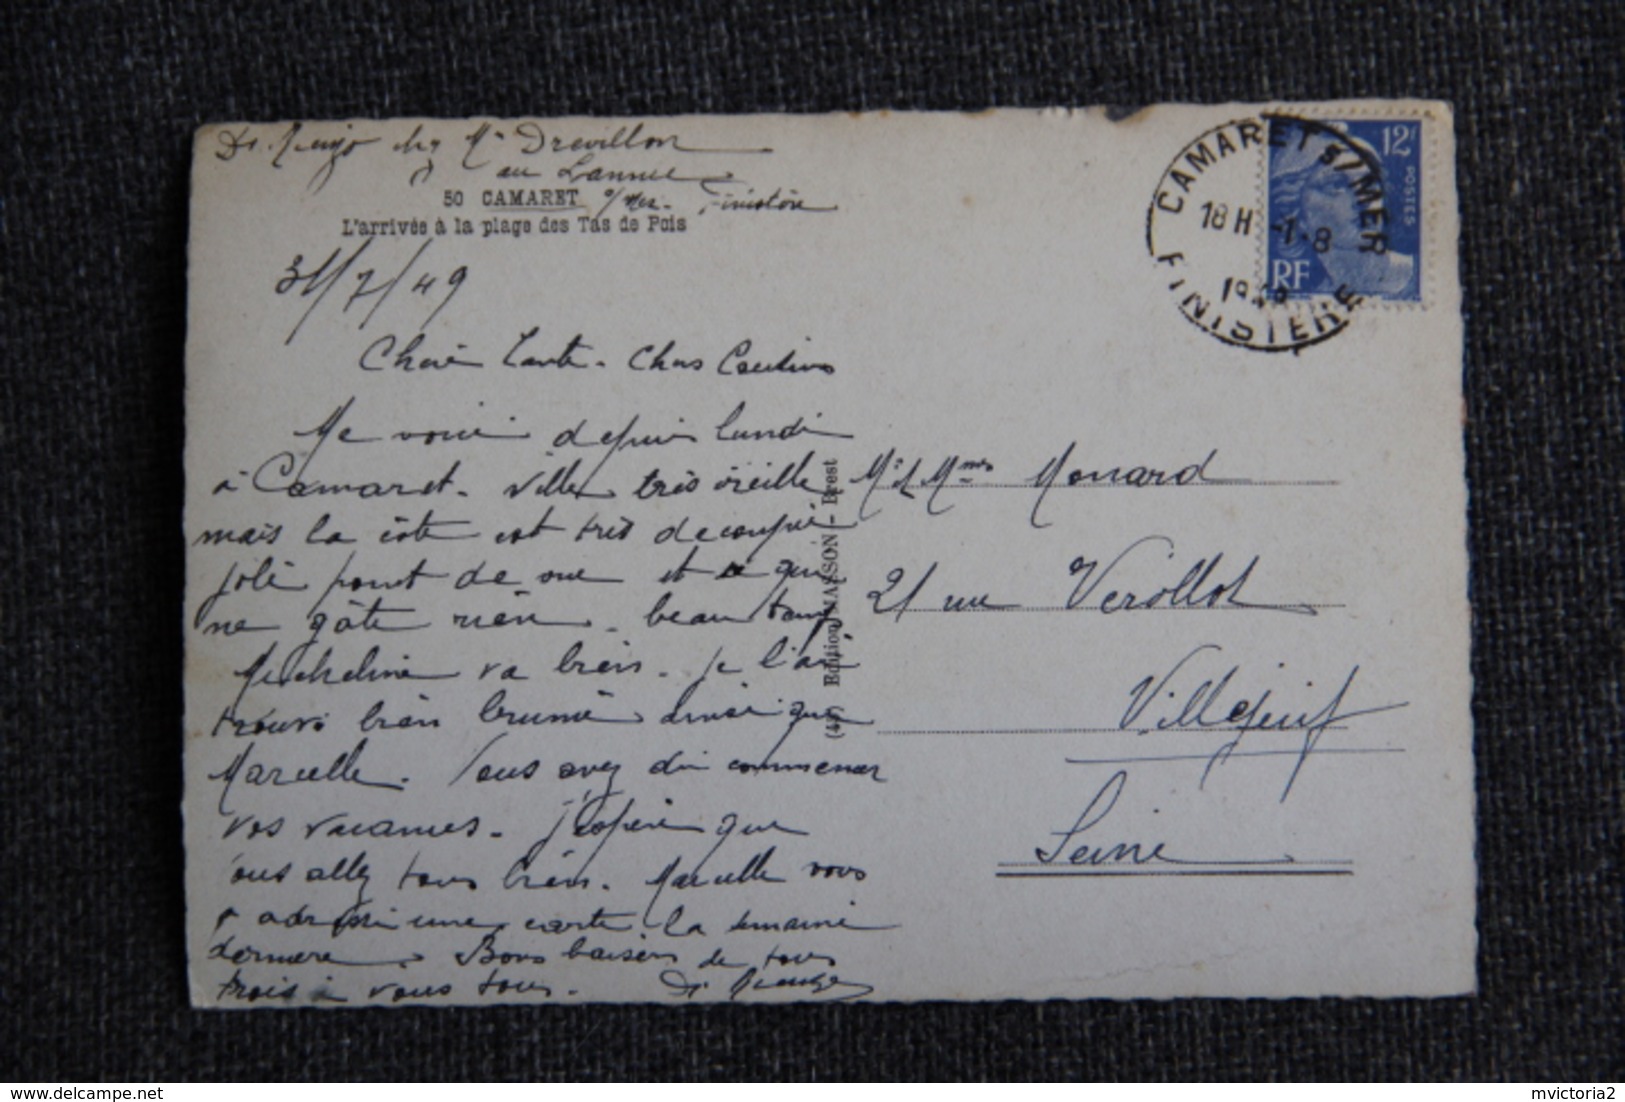 chez Mme Drevillon
au Lannic
50 CAMARET s/Mer. Finistère
L'arrivée à la plage des Tas de Pois
31/7/49
Chère Tante - Chers Cousins
Me voici depuis lundi
à Camaret. Ville très vieille
mais la côte est très découpée
joli point de vue et ce qui
ne gâte rien. beau temps
Micheline va bien. je l'ai
trouvé bien brunie ainsi que
Marcelle. Vous avez dû commencer
vos vacances. J'espère que
vous allez tous bien. Marcelle vous
a adressé une carte la semaine
dernière. Bons baisers de tous
trois à vous tous.
(43) Edition MASSON - Brest
CAMARET s/MER
18H -1-8
1949
FINISTERE
12F
POSTES
RF
Mr & Mme Monard
21 rue Verollot
Villejuif
Seine
mvictoria2